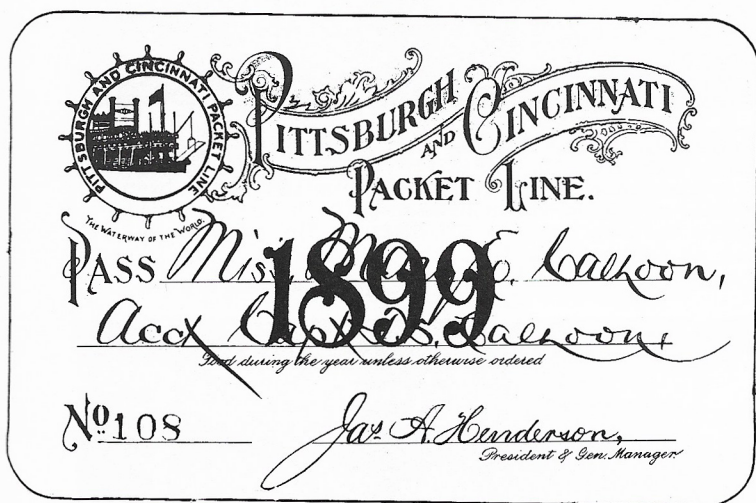 PITTSBURGH AND CINCINNATI PACKET LINE
THE WATERWAY OF THE WORLD.
PITTSBURGH AND CINCINNATI
PACKET LINE.
PASS Miss Mary Calhoon,
1899
Acct Capt Calhoon,
Good during the year unless otherwise ordered
No. 108
Jas A. Henderson,
President & Gen. Manager